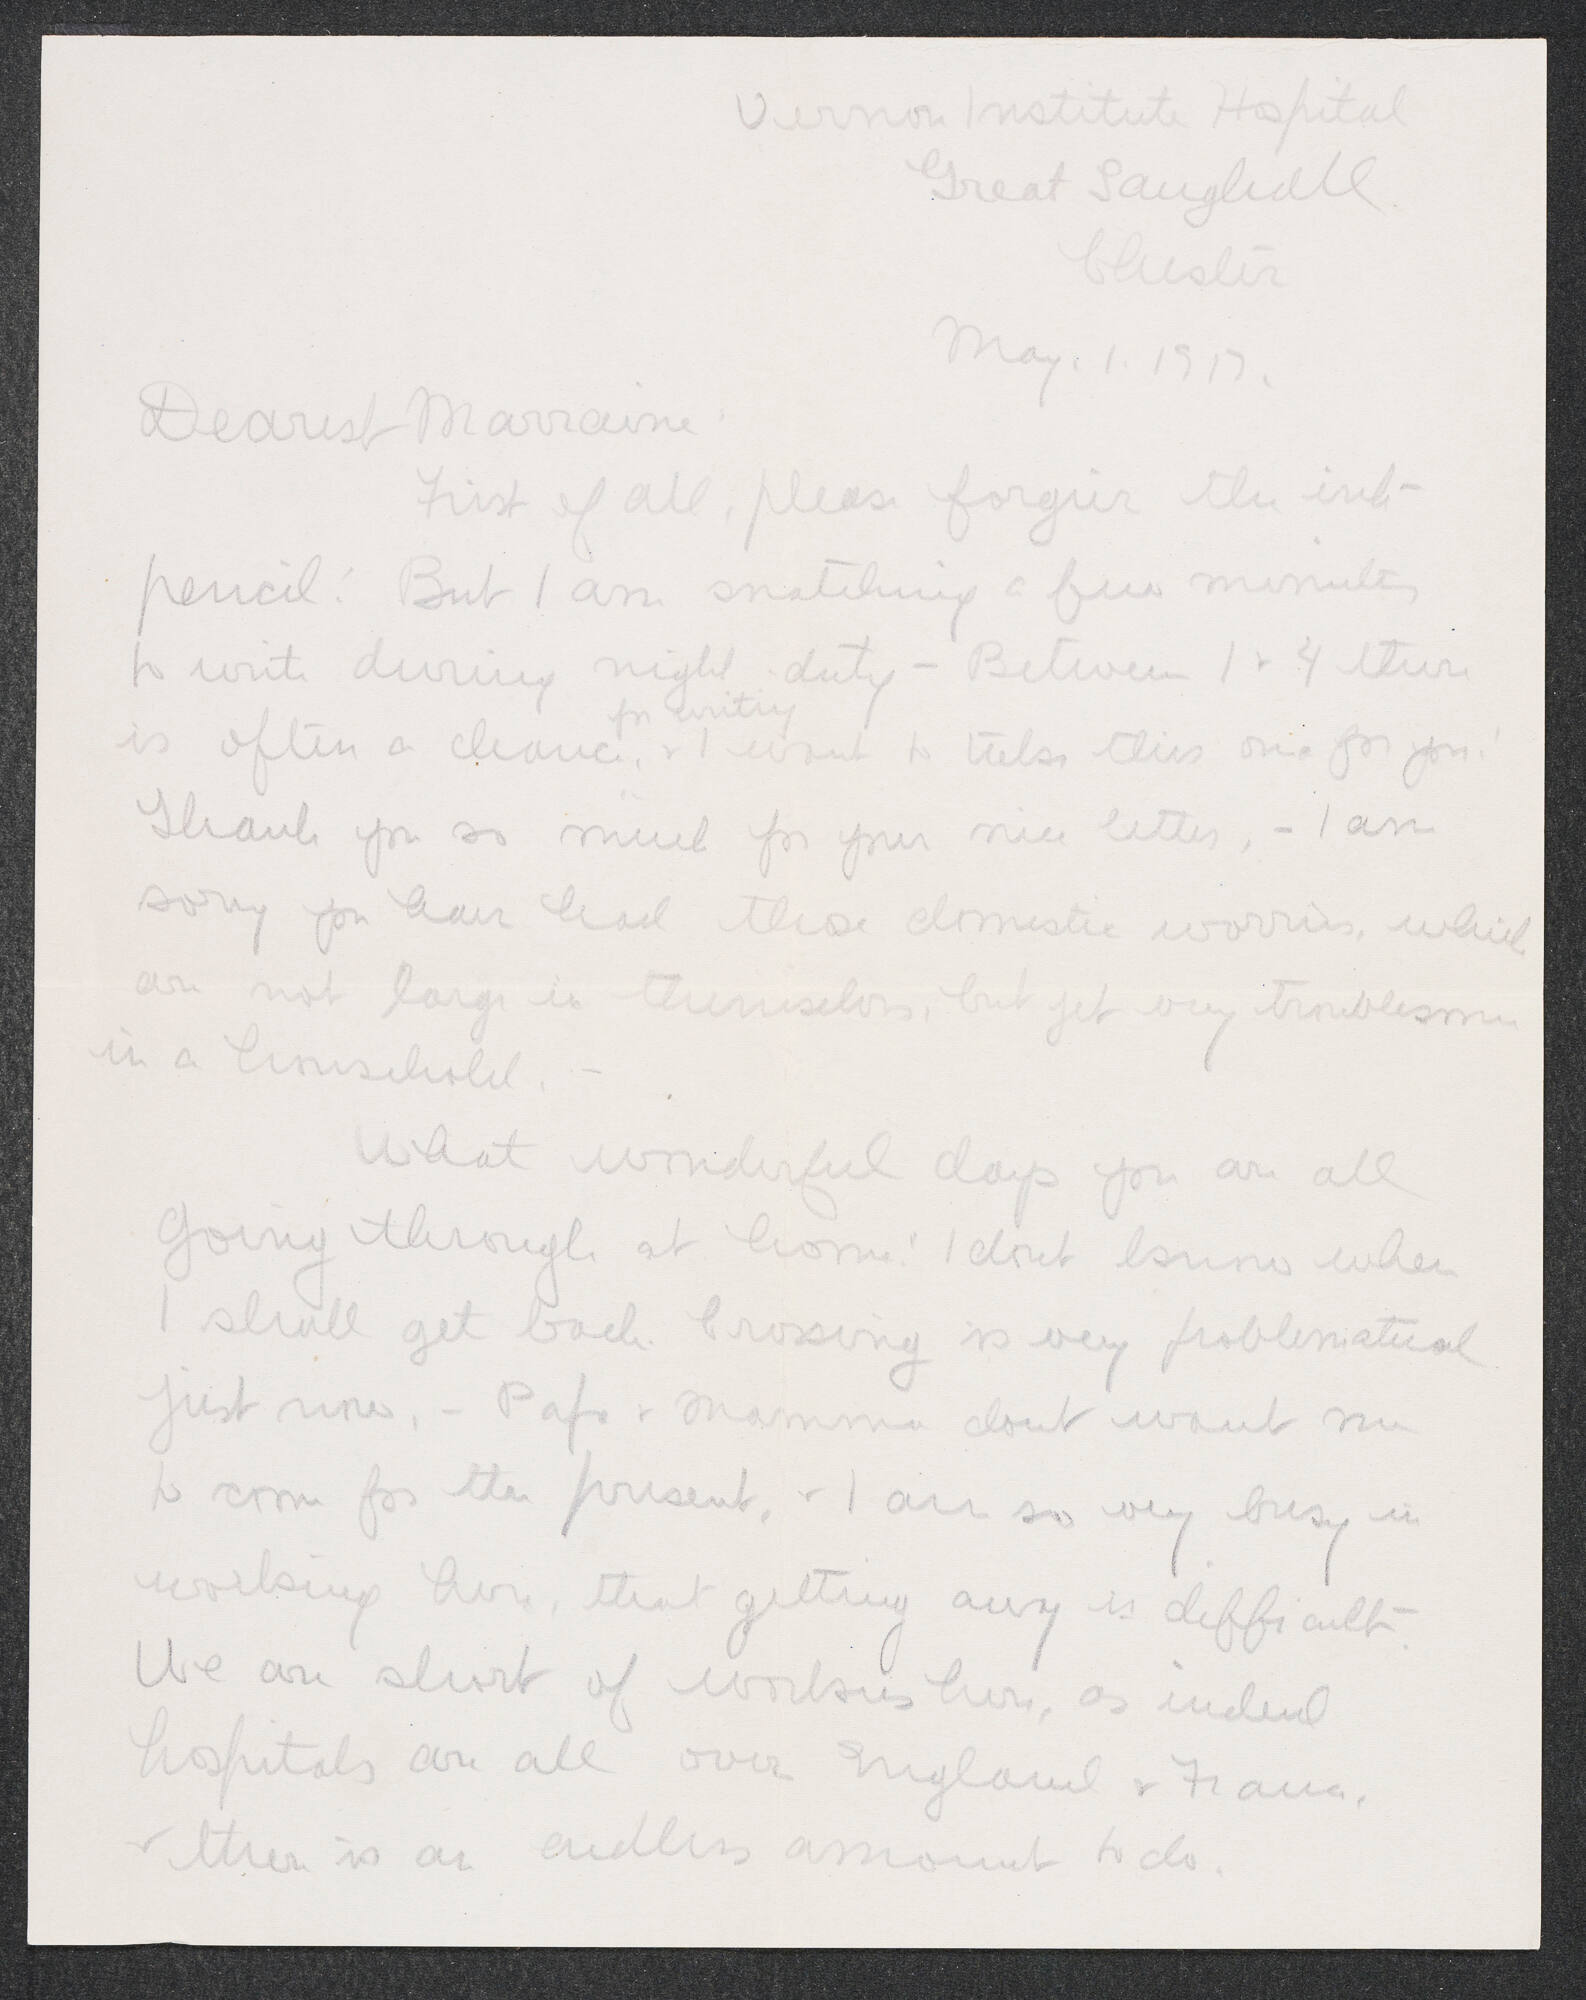 Vernon Institute Hospital
Great Saughall
Chester
May. 1. 1917.
Dearest Marraine:
First of all, please forgive the ink-
pencil! But I am snatching a few minutes
to write during night-duty - Between 1 & 4 there
for writing
is often a chance, & I want to take this one for you!
Thank you so much for your nice letter, - I am
sorry you have had those domestic worries, which
are not large in themselves, but yet very troublesome
in a household. -
What wonderful days you are all
going through at home! I dont know when
I shall get back. Crossing is very problematical
just now, - Papa & Mamma dont want me
to come for the present, & I am so very busy in
working here, that getting away is difficult.
We are short of workers here, as indeed
hospitals are all over England & France,
& there is an endless amount to do.